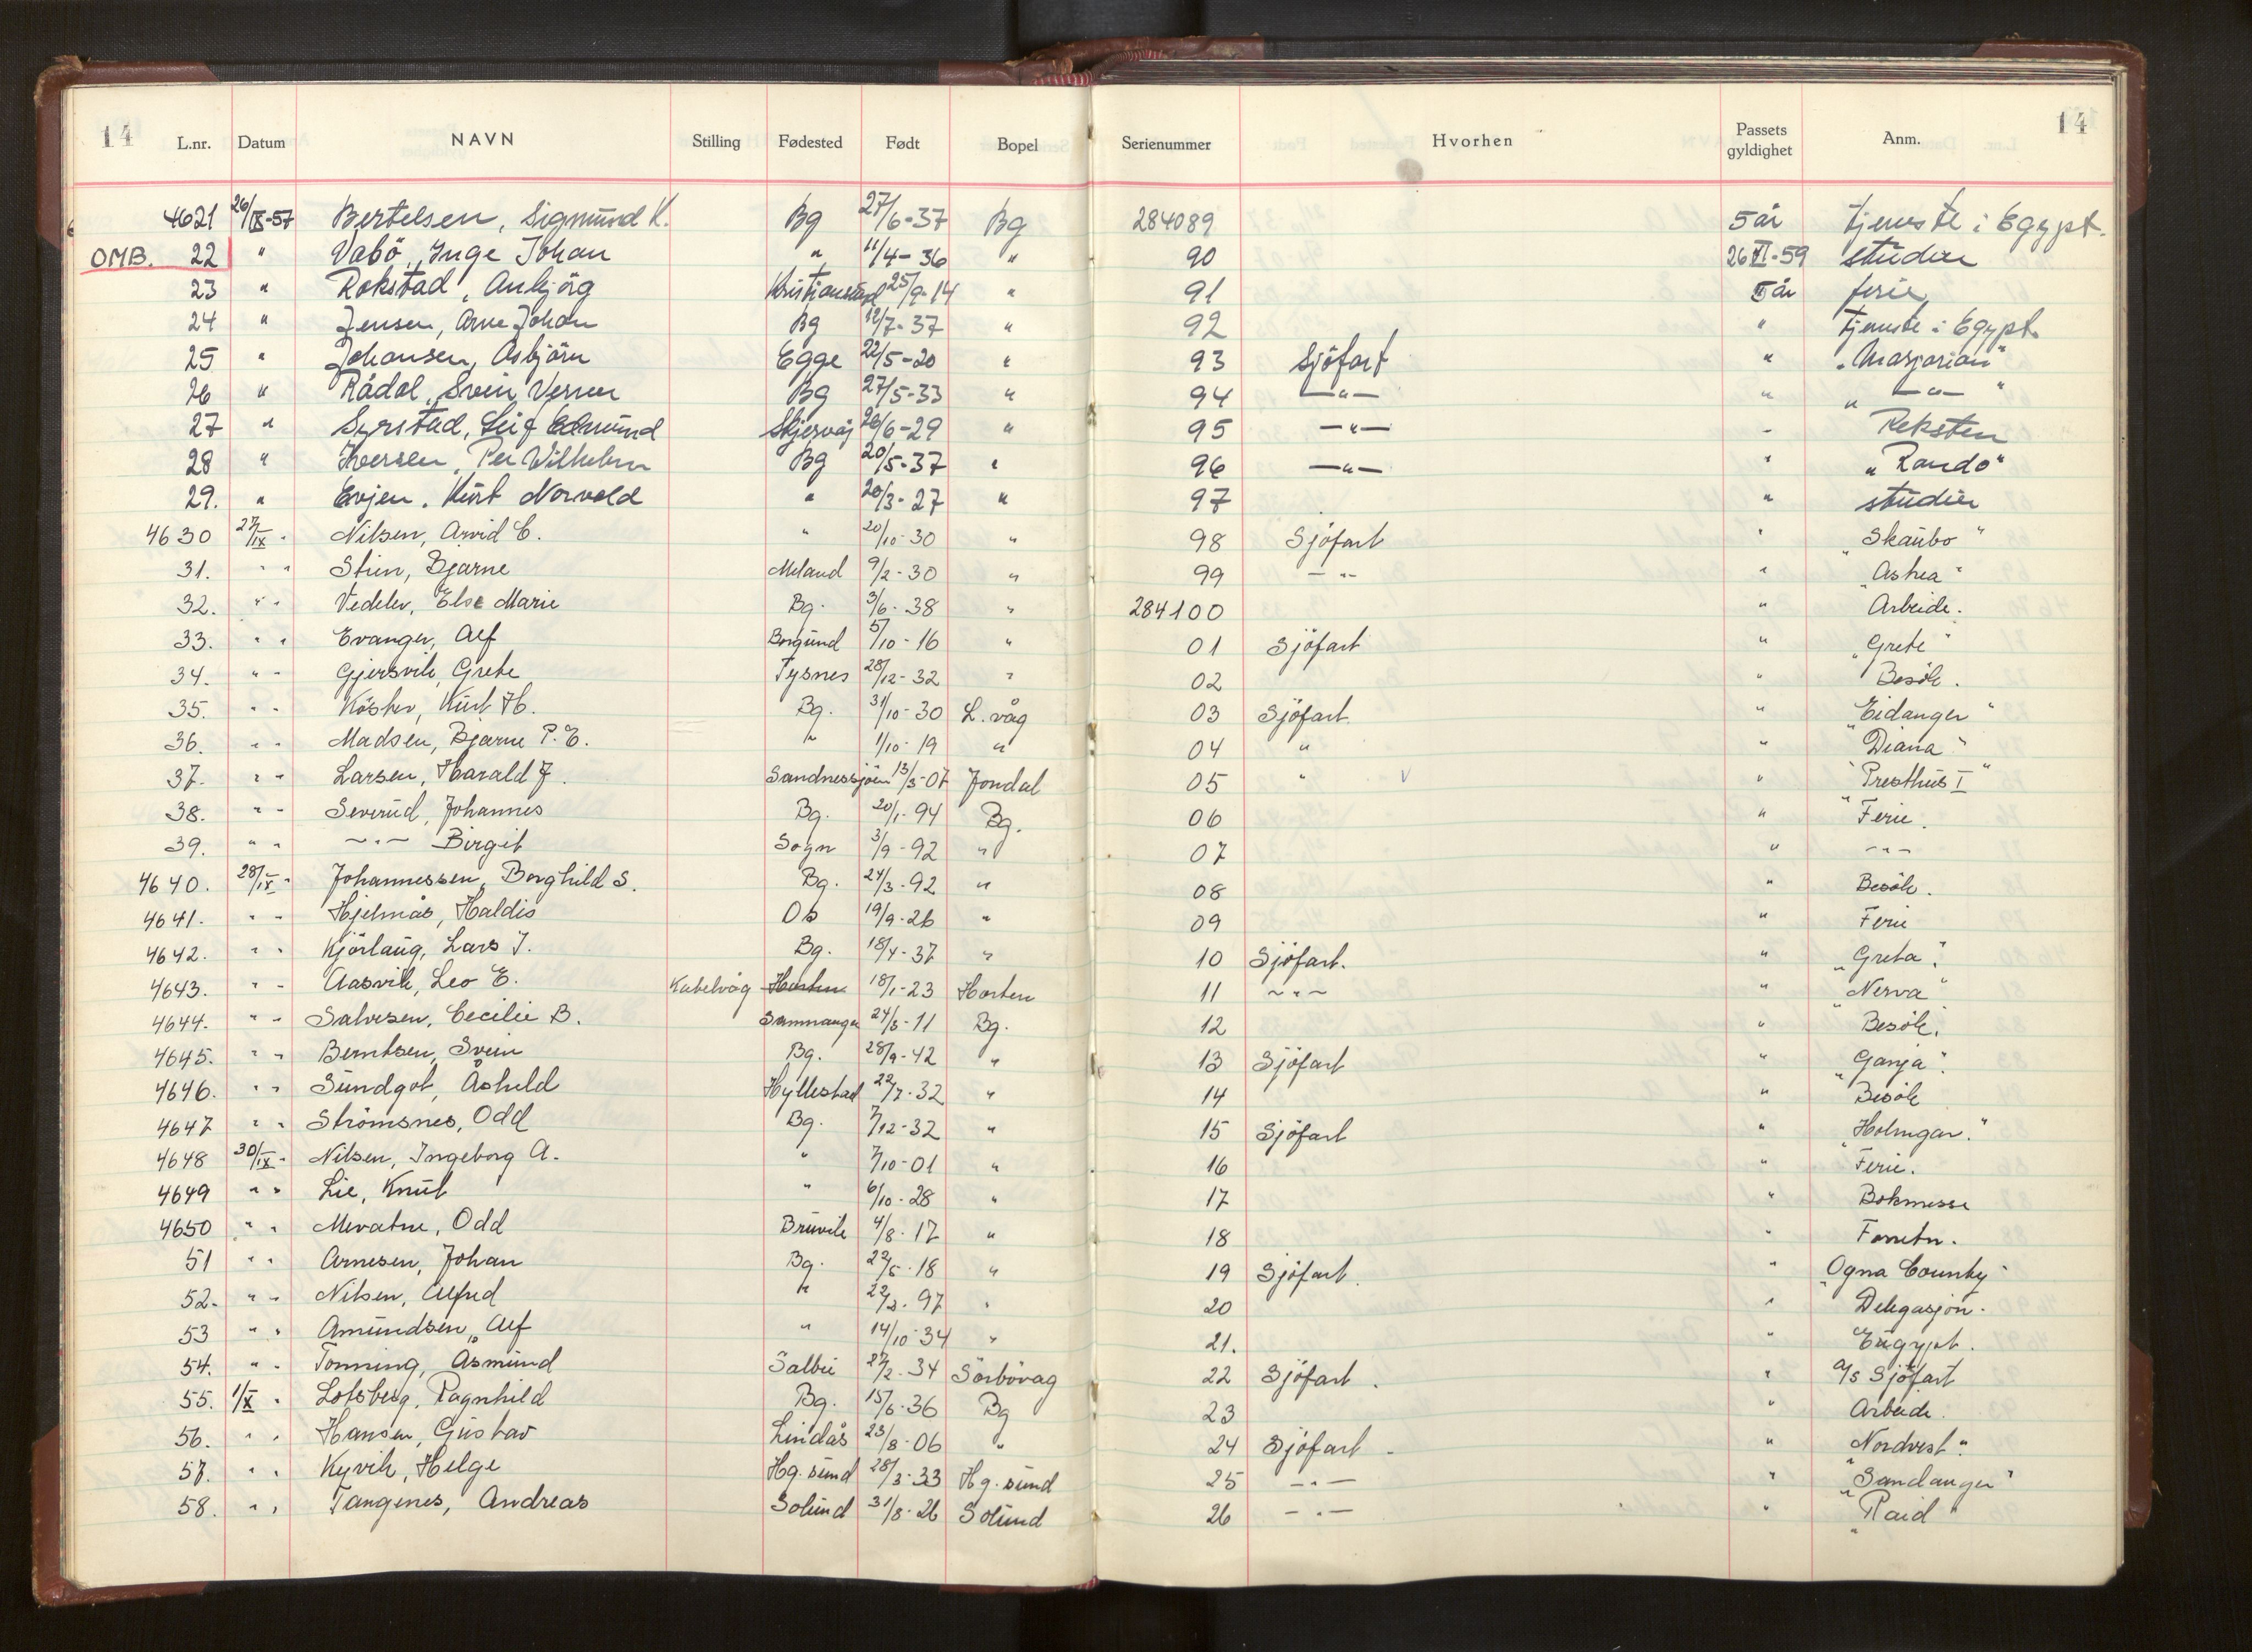 14 L.nr. Datum NAVN Stilling Fødested Født Bopel Serienummer Hvorhen Passets gyldighet Anm. 14
4621 26/IX-57 Bertelsen, Sigmund K. Bg 27/6-37 Bg 284089 5 år tjenste i Egypt.
OMB. 22 " Vabö, Inge Johan " 11/4-36 " 90 26 VI-59 studier
23 " Rokstad, Anbjörg Kristiansund 25/9-14 " 91 5 år ferie
24 " Jensen, Arne Johan Bg 12/7-37 " 92 " tjenste i Egypt.
25 " Johansen, Asbjörn Egge 22/5-20 " 93 Sjöfart " "Marjorian"
26 " Rådal, Svein Verner Bg 27/5-33 " 94 —"— " " —"— "
27 " Syrstad, Leif Edmund Skjervöy 26/6-29 " 95 —"— " Reksten
28 " Iversen, Per Wilhelm Bg 20/5-37 " 96 —"— " "Rando"
29. " Evjen, Kurt Norvald " 20/3-27 " 97 " studier
4630 27/IX " Nilsen, Arvid E. " 20/10-30 " 98 Sjöfart " "Skaubo"
31. " " Stien, Bjarne Meland 9/2-30 " 99 —"— " "Astrea"
32. " " Vedeler, Else Marie Bg. 3/6-38 " 284100 " Arbeide.
33. " " Evanger, Alf Borgund 5/10-16 " 01 Sjöfart " "Grete"
34. " " Gjersvik, Grete Tysnes 28/12-32 " 02 " Besök.
35. " " Köster, Kurt H. Bg. 31/10-30 L.våg 03 Sjöfart. " "Eidanger"
36. " " Madsen, Bjarne P.E. " 1/10-19 " 04 " " "Diana"
37. " " Larsen, Harald J. Sandnessjöen 13/3-07 Jondal 05 " V " "Presthus I"
38. " " Severud, Johannes Bg. 20/1-94 Bg. 06 " Ferie.
39. " " —"— Birgit Sogn 3/9-92 " 07 " —"—
4640. 28/IX " Johannessen, Borghild S. Bg. 24/3-92 " 08 " Besök.
4641. " " Hjelmås, Haldis Os 19/9-26 " 09 " Ferie
4642. " " Kjörlaug, Lars J. Bg. 18/4-37 " 10 Sjöfart. " "Greta".
4643. " " Aasvik, Leo E. Kabelvåg Horten 18/1-23 Horten 11 —"— " "Nerva"
4644. " " Salvesen, Cecilie B. Samnanger 24/3-11 Bg. 12 " Besök.
4645. " " Berntsen, Svein Bg. 28/9-42 " 13 Sjöfart " "Ganja".
4646. " " Sundgot, Åshild Hyllestad 22/7-32 " 14 " Besök
4647 " " Strömsnes, Odd Bg. 7/12-32 " 15 Sjöfart " "Holmgar."
4648 30/IX " Nilsen, Ingeborg A. " 7/10-01 " 16 " Ferie.
4649 " " Lie, Knut " 6/10-28 " 17 " Bokmesse
4650 " " Mevatne, Odd Bruvik 4/8-17 " 18 " Forretn.
51 " " Arnesen, Johan Bg. 22/5-18 " 19 Sjöfart. " "Ogna County"
52. " " Nilsen, Alfred " 22/3-97 " 20 " Delegasjon.
53 " " Amundsen, Alf " 14/10-34 " 21. " Eügypt.
54. " " Tonning, Åsmund Salbu 27/2-34 Sörbövåg 22 Sjöfart. " A/s Sjöfart
55. 1/X " Lotsberg, Ragnhild Bg. 15/6-36 Bg 23 " Arbeide.
56. " " Hansen, Gustav Lindås 23/8-06 " 24 Sjöfart " "Nordvest".
57. " " Kyvik, Helge Hg.sund 28/3-33 Hg.sund 25 —"— " "Sandanger"
58. " " Tangenes, Andreas Solund 31/8-26 Solund 26 —"— " "Raid"